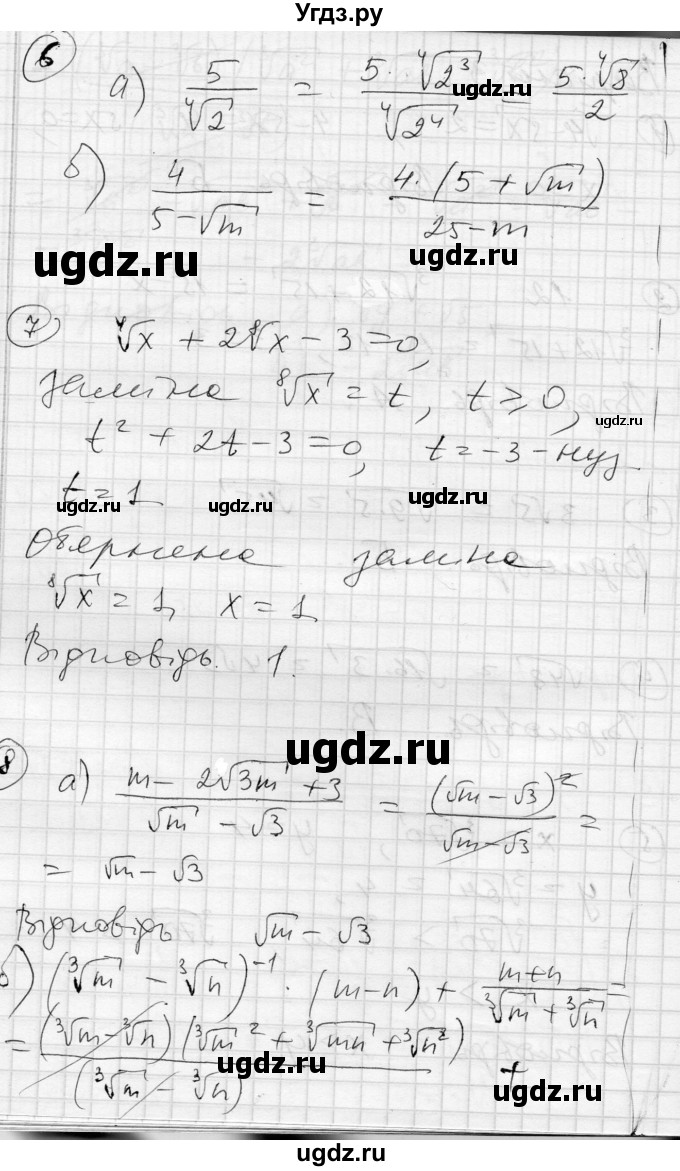 Угдз.ру
6
а) 5/⁴√2 = 5·⁴√2³/⁴√2⁴ = 5·⁴√8/2
б) 4/(5-√m) = 4·(5+√m)/(25-m)
ugdz.ru ugdz.ru
7 ⁴√x + 2⁸√x - 3 = 0,
заміна ⁸√x = t, t ≥ 0,
t² + 2t - 3 = 0, t = -3 - н.у.з.
t = 1
ugdz.ru ugdz.ru ugdz.ru
Обернена заміна
⁸√x = 1, x = 1
Відповідь. 1.
ugdz.ru
8 а) (m - 2√3m + 3)/(√m - √3) = (√m - √3)²/(√m - √3) =
= √m - √3
Відповідь √m - √3
б) (³√m - ³√n)⁻¹ · (m-n) + (m+n)/(³√m + ³√n) =
= (³√m - ³√n)(³√m² + ³√mn + ³√n²)/(³√m - ³√n) +
ugdz.ru ugdz.ru
ugdz.ru